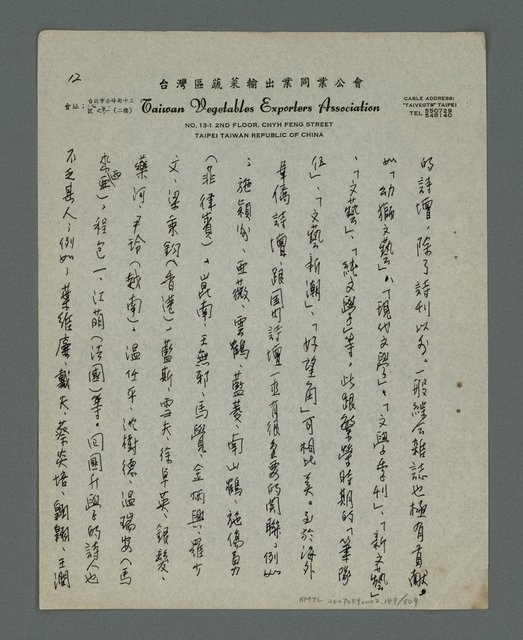 12
台灣區蔬菜輸出業同業公會
會址:台北市赤峰街十三號之一(二樓)
Taiwan Vegetables Exporters Association
CABLE ADDRESS:
"TAIVEGTS" TAIPEI
TEL 550728
546140
NO. 13-1 2ND FLOOR, CHYH FENG STREET
TAIPEI TAIWAN REPUBLIC OF CHINA
的詩壇,除了詩刊以外,一般綜合雜誌也極有貢獻。
如「幼獅文藝」、「現代文學」、「文學季刊」、「新文藝」
、「文藝」、「純文學」等,此跟繁榮時期的「筆隊
伍」、「文藝新潮」、「好望角」可相比美。至於海外
華僑詩壇,跟國內詩壇一直有很重要的關聯,例如
:施穎洲、亞薇、雲鶴、藍菱、南山鶴、施僑勇
(菲律賓),崑南、王無邪、馬覺、金炳興、羅少
文、梁秉鈞(香港),藍斯、雪夫、徐卓英、銀髮、
藥河、尹玲(越南),溫任平、沈樹德、溫瑞安(馬
來西亞),程抱一、江萌(法國)等。回國升學的詩人也
不乏其人,例如:葉維廉、戴天、蔡炎培、翱翱、王潤
NMTL 20070590002.149/509